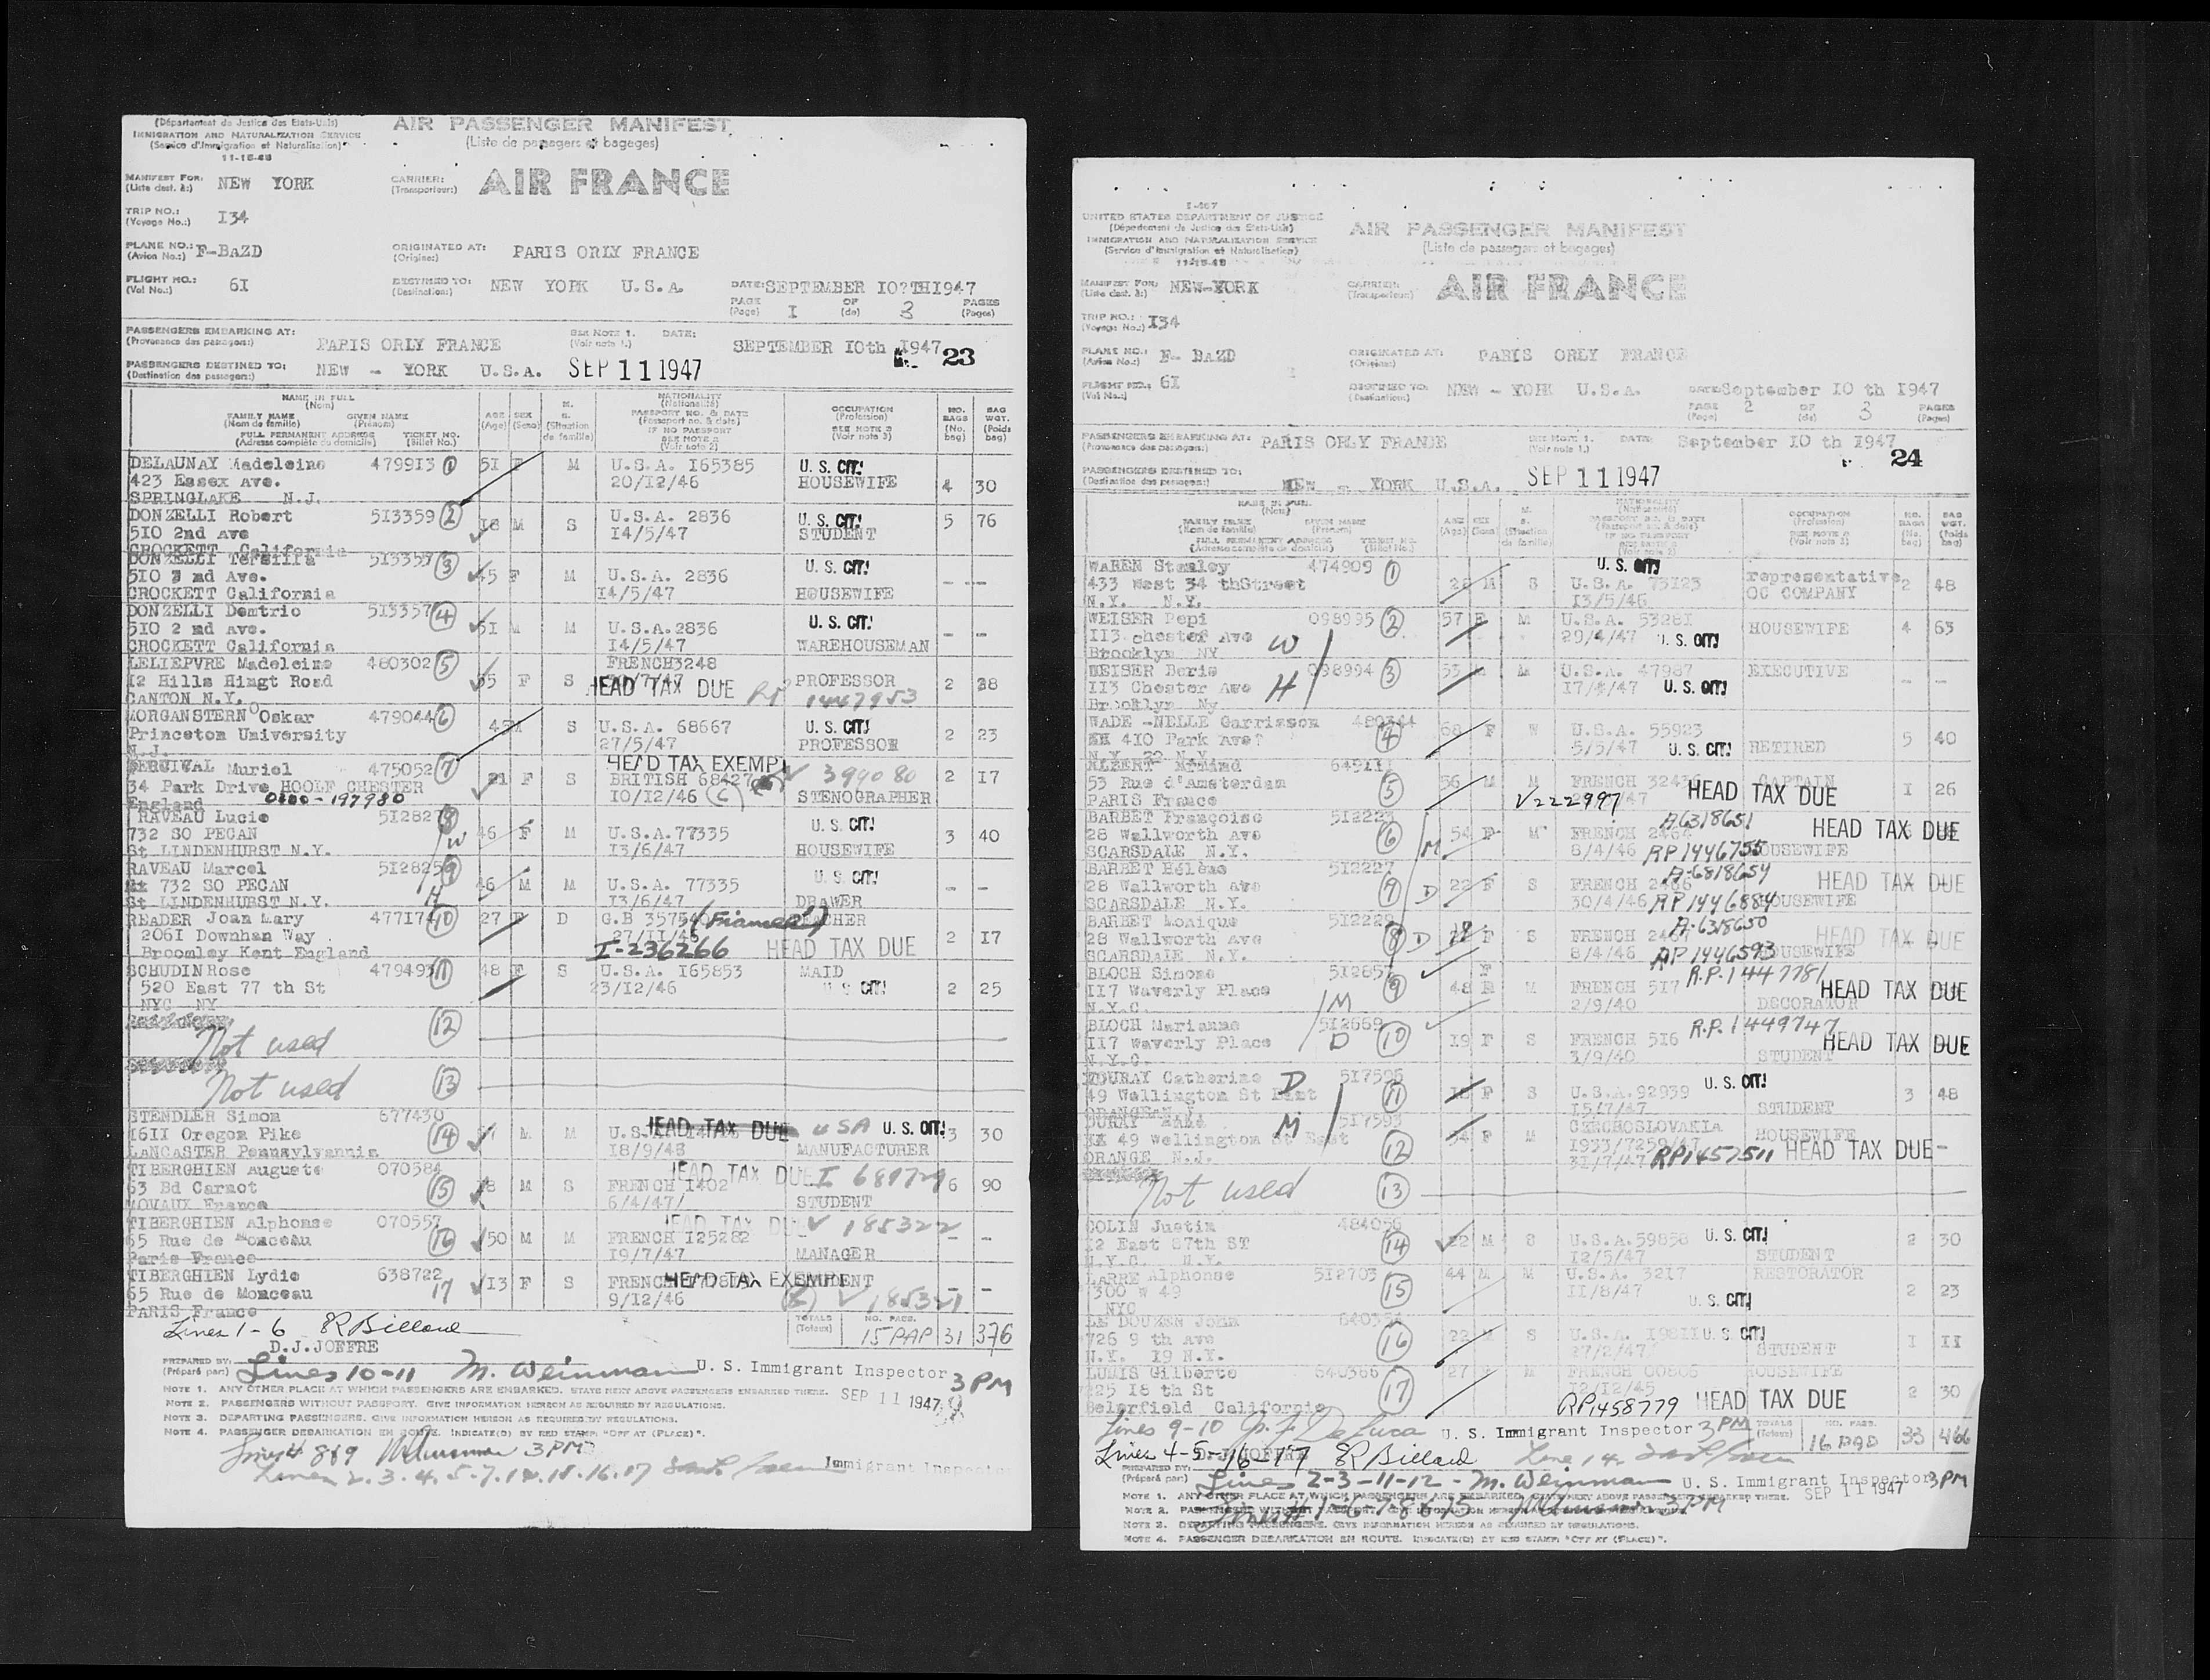 (Département de Justice des Etats-Unis)
IMMIGRATION AND NATURALIZATION SERVICE
(Service d'Immigration et Naturalisation)
11-15-48
AIR PASSENGER MANIFEST
(Liste de passagers et bagages)
MANIFEST FOR: NEW YORK
(Liste dest. à:)
CARRIER: AIR FRANCE
(Transporteur:)
TRIP NO.: I34
(Voyage No.:)
PLANE NO.: F-BAZD
(Avion No.:)
ORIGINATED AT: PARIS ORLY FRANCE
(Origine:)
FLIGHT NO.: 6I
(Vol No.:)
DESTINED TO: NEW YORK U.S.A.
(Destination:)
DATE: SEPTEMBER IO?TH I947
PAGE I OF 3 PAGES
(Page) (de) (Pages)
PASSENGERS EMBARKING AT: PARIS ORLY FRANCE
(Provenance des passagers:)
SEE NOTE 1. DATE: SEPTEMBER IOth I947
(Voir note 1.)
23
PASSENGERS DESTINED TO: NEW - YORK U.S.A. SEP 11 1947
(Destination des passagers:)
NAME IN FULL
(Nom)
FAMILY NAME GIVEN NAME
(Nom de famille) (Prénom)
FULL PERMANENT ADDRESS TICKET NO.
(Adresse complète du domicile) (Billet No.)
AGE (Age) SEX (Sexe) M. S. (Situation de famille)
NATIONALITY (Nationalité)
PASSPORT NO. & DATE
(Passeport no. & date)
IF NO PASSPORT
SEE NOTE 2
(Voir note 2)
OCCUPATION (Profession) SEE NOTE 3 (Voir note 3)
NO. BAGS (No. bag) BAG WGT. (Poids bag)
DELAUNAY Madeleine 479913 1 5I F M U.S.A. I65385 U. S. CIT!
423 Essex Ave. 20/I2/46 HOUSEWIFE 4 30
SPRINGLAKE N.J.
DONZELLI Robert 5I3359 2 I8 M S U.S.A. 2836 U. S. CIT! 5 76
5IO 2nd Ave I4/5/47 STUDENT
CROCKETT California
DONZELLI Tersilla 5I3355 3 45 F M U.S.A. 2836 U. S. CIT!
5IO 2 nd Ave. I4/5/47 HOUSEWIFE
CROCKETT California
DONZELLI Demtrio 5I3357 4 5I M M U.S.A.2836 U. S. CIT!
5IO 2 nd ave. I4/5/47 WAREHOUSEMAN
CROCKETT California
LELIEPVRE Madeleine 480302 5 F S FRENCH3248 PROFESSOR 2 28
I2 Hills Hingt Road HEAD TAX DUE RP 1447953
CANTON N.Y.
MORGANSTERN Oskar 479044 6 45 M S U.S.A. 68667 U. S. CIT! 2 23
Princeton University 27/5/47 PROFESSOR
N.J.
PERCIVAL Muriel 475052 7 F S HEAD TAX EXEMPT BRITISH 68427 2 I7
34 Park Drive HOOLE CHESTER IO/I2/46 STENOGRAPHER
England 0300-197980
RAVEAU Lucie 8 W 46 F M U.S.A.77335 U. S. CIT! 3 40
732 SO PECAN I3/6/47 HOUSEWIFE
St LINDENHURST N.Y.
RAVEAU Marcel 9 H 46 M M U.S.A. 77335 U. S. CIT!
732 SO PECAN I3/6/47 DRAWER
St LINDENHURST N.Y.
READER Joan Mary 10 27 F D G.B 2 I7
206I Downhan Way 27/II/46
Broomley Kent England I-236266 HEAD TAX DUE
SCHUDIN Rose 11 48 F S U.S.A. I65853 MAID
520 East 77 th St 23/I2/46 U S CIT! 2 25
NYC NY
12
Not used
13
Not used
STENDLER Simon 677430 14 M M HEAD TAX DUE USA U. S. CIT! 3 30
I6II Oregon Pike I8/9/48 MANUFACTURER
LANCASTER Pennsylvannia
TIBERGHIEN Auguste 070584 15 M S FRENCH I402 HEAD TAX DUE I 689729 6 90
63 Bd Carnot 6/4/47 STUDENT
MOVAUX France
TIBERGHIEN Alphonse 070557 16 50 M M FRENCH I25282 HEAD TAX DUE 185322
65 Rue de Monceau I9/7/47 MANAGER
Paris France
TIBERGHIEN Lydie 638722 17 I3 F S FRENCH HEAD TAX EXEMPT STUDENT
65 Rue de Monceau 9/I2/46 185321
PARIS France
TOTALS (Totaux) NO. PASS. 15 PAP 31 376
Lines 1-6 R Billard
D.J.JOFFRE
PREPARED BY:
(Préparé par:)
Lines 10-11 M. Weinman U. S. Immigrant Inspector 3 PM
NOTE 1. ANY OTHER PLACE AT WHICH PASSENGERS ARE EMBARKED. STATE NEXT ABOVE PASSENGERS EMBARKED THERE. SEP 11 1947
NOTE 2. PASSENGERS WITHOUT PASSPORT. GIVE INFORMATION HEREON AS REQUIRED BY REGULATIONS.
NOTE 3. DEPARTING PASSENGERS. GIVE INFORMATION HEREON AS REQUIRED BY REGULATIONS.
NOTE 4. PASSENGER DEBARKATION EN ROUTE. INDICATE(D) BY RED STAMP: "OFF AT (PLACE)".
3 PM
Lines 2.3.4.5.7.14.15.16.17 Immigrant Inspector
I-467
UNITED STATES DEPARTMENT OF JUSTICE
(Département de Justice des Etats-Unis)
IMMIGRATION AND NATURALIZATION SERVICE
(Service d'Immigration et Naturalisation)
11-15-48
AIR PASSENGER MANIFEST
(Liste de passagers et bagages)
MANIFEST FOR: NEW-YORK
(Liste dest. à:)
CARRIER: AIR FRANCE
(Transporteur:)
TRIP NO.: I34
(Voyage No.:)
PLANE NO.: F- BAZD
(Avion No.:)
ORIGINATED AT: PARIS ORLY FRANCE
(Origine:)
FLIGHT NO.: 6I
(Vol No.:)
DESTINED TO: NEW - YORK U.S.A.
(Destination:)
DATE September IO th I947
PAGE 2 OF 3 PAGES
(Page) (de) (Pages)
PASSENGERS EMBARKING AT: PARIS ORLY FRANCE
(Provenance des passagers:)
SEE NOTE 1. DATE: September IO th I947
(Voir note 1.)
24
PASSENGERS DESTINED TO: NEW - YORK U.S.A. SEP 11 1947
(Destination des passagers:)
WAREN Stanley 474909 1 M S U. S. CIT! U.S.A. 73I23 representative 2 48
433 West 34 thStreet I3/5/46 OC COMPANY
N.Y. N.Y.
WEISER Pepi 098995 2 57 F M U.S.A. 5328I HOUSEWIFE 4 63
II3 chester Ave W 29/4/47 U. S. CIT!
Brooklyn NY
WEISER Boris 098994 3 55 M M U.S.A. 47987 EXECUTIVE
II3 Chester Ave H I7/4/47 U. S. CIT!
Brooklyn Ny
WADE -NELLE Garrisson 4 68 F W U.S.A. 55923 5 40
4IO Park Ave? 5/5/47 U. S. CIT! RETIRED
ALBERT 5 56 M M FRENCH CAPTAIN I 26
53 Rue d'Amsterdam V222997 HEAD TAX DUE
PARIS France
BARBET Françoise 6 M 54 F M FRENCH A6318651 HEAD TAX DUE
28 Wallworth Ave 8/4/46 RP 1446755 HOUSEWIFE
SCARSDALE N.Y.
BARBET Hélène 5I2227 D 22 F S FRENCH A-6818654 HEAD TAX DUE
28 Wallworth ave 30/4/46 RP 1446884 HOUSEWIFE
SCARSDALE N.Y.
BARBET Monique 8 D F S FRENCH A-6318650 HEAD TAX DUE
28 Wallworth Ave 8/4/46 RP 1446593 HOUSEWIFE
SCARSDALE N.Y.
BLOCH Simone 9 M 48 F M FRENCH 5I7 R.P. 1447781 HEAD TAX DUE
II7 Waverly Place 2/9/40 DECORATOR
N.Y.C.
BLOCH Marianne 5I2669 10 D I9 F S FRENCH 5I6 R.P. 1449747 HEAD TAX DUE
II7 Waverly Place 3/9/40 STUDENT
N.Y.C.
Catherine 5I7595 11 D F S U.S.A.92939 U. S. CIT! 3 48
49 Wellington St East I5/7/47 STUDENT
5I7593 12 M F M CZECHOSLOVAKIA HOUSEWIFE
49 Wellington St East I933/7259/47
ORANGE N.J. 3I/7/47 RP1457511 HEAD TAX DUE
Not used 13
COLIN Justin 14 M S U.S.A.59858 U. S. CIT! 2 30
I2 East 87th ST I2/5/47 STUDENT
N.Y.C. N.Y.
LARRE Alphonse 5I2703 15 44 M M U.S.A. 32I7 RESTORATOR 2 23
300 W 49 II/8/47 U. S. CIT!
NYC
LE DOUZEN John 16 22 M S U.S.A. I98II U. S. CIT! I II
726 9 th Ave 27/2/47 STUDENT
N.Y. I9 N.Y.
Gilberte 640366 17 27 F M FRENCH 00806 HOUSEWIFE 2 30
I8 th St I2/I2/45
California RP1458779 HEAD TAX DUE
Lines 9-10 De Luca U. S. Immigrant Inspector 3 PM TOTALS (Totaux) NO. PASS. 16 PAP 33 466
Lines 4-5-16-17 R Billard Line 14
PREPARED BY:
(Préparé par:)
Lines 2-3-11-12 - M. Weinman U. S. Immigrant Inspector 3 PM
SEP 11 1947
NOTE 1. ANY OTHER PLACE AT WHICH PASSENGERS ARE EMBARKED. STATE NEXT ABOVE PASSENGERS EMBARKED THERE.
3 PM
NOTE 3. DEPARTING PASSENGERS. GIVE INFORMATION HEREON AS REQUIRED BY REGULATIONS.
NOTE 4. PASSENGER DEBARKATION EN ROUTE. INDICATE(D) BY RED STAMP: "OFF AT (PLACE)".